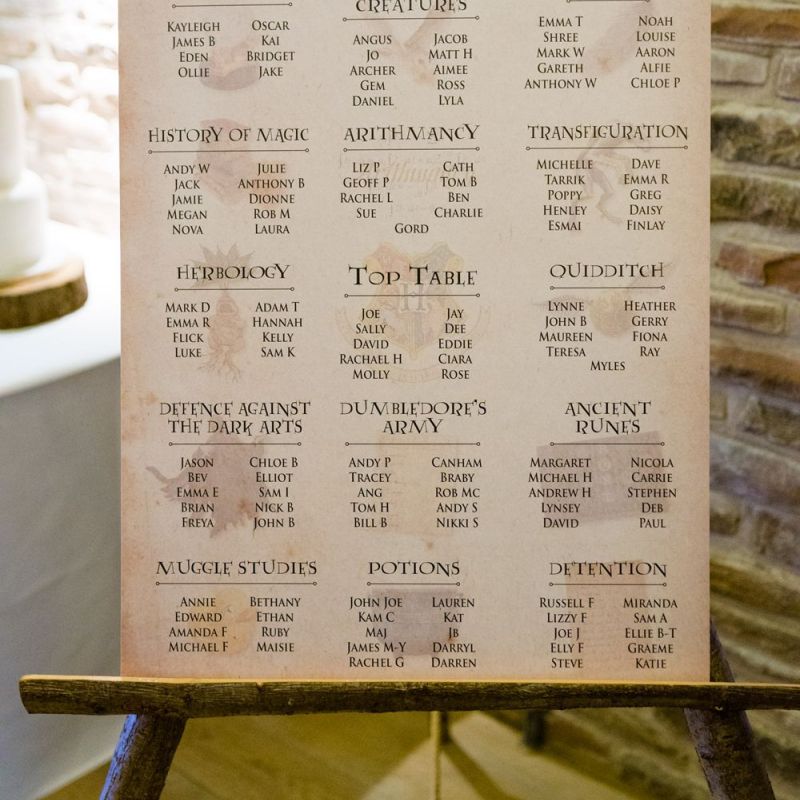 KAYLEIGH OSCAR
JAMES B KAI
EDEN BRIDGET
OLLIE JAKE
CREATURES
ANGUS JACOB
JO MATT H
ARCHER AIMEE
GEM ROSS
DANIEL LYLA
EMMA T NOAH
SHREE LOUISE
MARK W AARON
GARETH ALFIE
ANTHONY W CHLOE P
HISTORY OF MAGIC
ANDY W JULIE
JACK ANTHONY B
JAMIE DIONNE
MEGAN ROB M
NOVA LAURA
ARITHMANCY
LIZ P CATH
GEOFF P TOM B
RACHEL L BEN
SUE CHARLIE
GORD
TRANSFIGURATION
MICHELLE DAVE
TARRIK EMMA R
POPPY GREG
HENLEY DAISY
ESMAI FINLAY
HERBOLOGY
MARK D ADAM T
EMMA R HANNAH
FLICK KELLY
LUKE SAM K
TOP TABLE
JOE JAY
SALLY DEE
DAVID EDDIE
RACHAEL H CIARA
MOLLY ROSE
QUIDDITCH
LYNNE HEATHER
JOHN B GERRY
MAUREEN FIONA
TERESA RAY
MYLES
DEFENCE AGAINST
THE DARK ARTS
JASON CHLOE B
BEV ELLIOT
EMMA E SAM I
BRIAN NICK B
FREYA JOHN B
DUMBLEDORE'S
ARMY
ANDY P CANHAM
TRACEY BRABY
ANG ROB MC
TOM H ANDY S
BILL B NIKKI S
ANCIENT
RUNES
MARGARET NICOLA
MICHAEL H CARRIE
ANDREW H STEPHEN
LYNSEY DEB
DAVID PAUL
MUGGLE STUDIES
ANNIE BETHANY
EDWARD ETHAN
AMANDA F RUBY
MICHAEL F MAISIE
POTIONS
JOHN JOE LAUREN
KAM C KAT
MAJ JB
JAMES M-Y DARRYL
RACHEL G DARREN
DETENTION
RUSSELL F MIRANDA
LIZZY F SAM A
JOE J ELLIE B-T
ELLY F GRAEME
STEVE KATIE